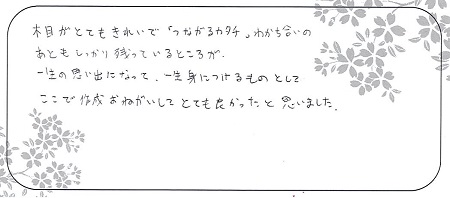 木目がとてもきれいで「つながるカタチ」わかち合いの
あともしっかり残っているところが、
一生の思い出になって、一生身につけるものとして
ここで作成おねがいしてとても良かったと思いました。